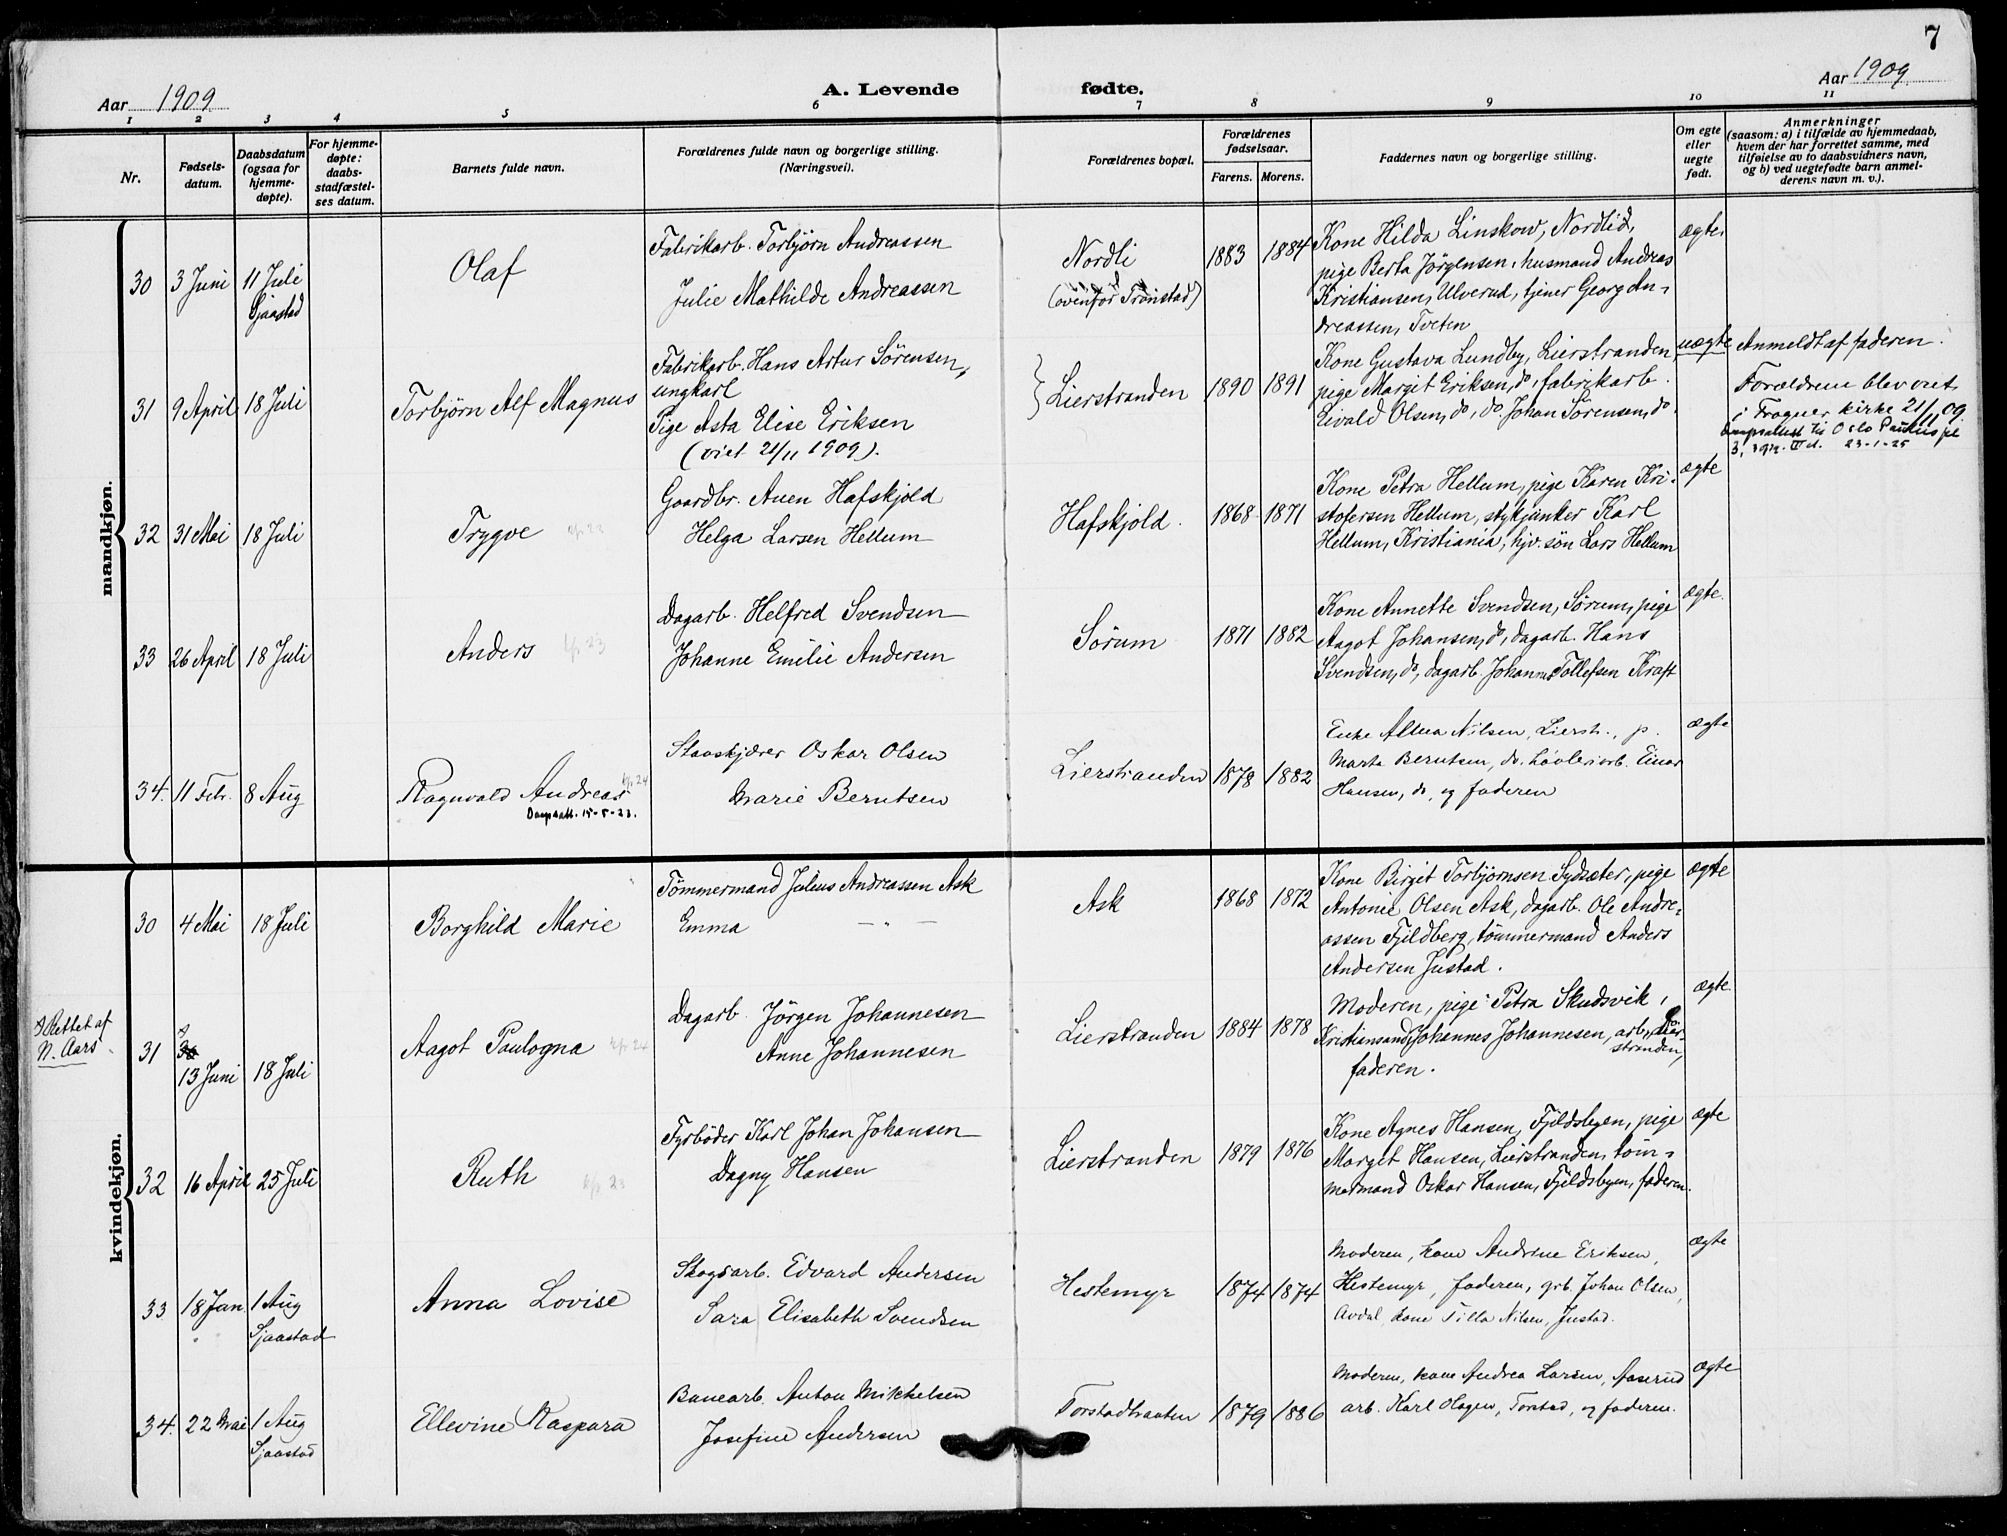 7
Aar 1909. A. Levende fødte. Aar 1909.
1 2 3 4 5 6 7 8 9 10 11
Nr.
Fødsels-
datum.
Daabsdatum
(ogsaa for
hjemme-
døpte).
For hjemme-
døpte:
daabs-
stadfæstel-
ses datum.
Barnets fulde navn.
Forældrenes fulde navn og borgerlige stilling.
(Næringsvei).
Forældrenes bopæl.
Forældrenes
fødselsaar.
Farens. Morens.
Faddernes navn og borgerlige stilling.
Om egte
eller
uegte
født.
Anmerkninger
(saasom: a) i tilfælde av hjemmedaab,
hvem der har forrettet samme, med
tilføielse av to daabsvidners navn,
og b) ved uegtefødte barn anmel-
derens navn m. v.).
mandkjøn.
30
3 Juni
11 Juli
Sjaastad
Olaf
Fabrikarb. Torbjørn Andreassen
Julie Mathilde Andreassen
Nordli
(ovenfor Tronstad)
1883
1884
Kone Hilda Linskow, Nordlid,
pige Berta Jörgensen, husmand Andreas
Kristiansen, Ulverud, tjener Georg An-
dreassen, Tveten
ægte.
31
9 April
18 Juli
Torbjørn Alf Magnus
Fabrikarb. Hans Artur Sörensen,
ungkarl
Pige Asta Elise Eriksen
(viet 21/11 1909).
Lierstranden
1890
1891
Kone Gustava Lundby, Lierstranden
pige Margit Eriksen, do, fabrikarb.
Eivald Olsen, do, do. Johan Sørensen, do.
uægte
Anmeldt af faderen.
Forældrene blev viet
i Frogner kirke 21/11 09.
Daapsattest til Oslo Paulus pl
3, 23-1-25
32
31 Mai
18 Juli
Trygve
Gaardbr. Auen Hafskjold
Helga Larsen Hellum
Hafskjold.
1868
1871
Kone Petra Hellum, pige Karen Kri-
stofersen Hellum, stykjunker Karl
Hellum, Kristiania, hjv. søn Lars Hellum
ægte
33
26 April
18 Juli
Anders
Dagarb. Helfred Svendsen
Johanne Emilie Andersen
Sørum
1871
1882
Kone Annette Svendsen, Sørum, pige
Aagot Johansen, do, dagarb. Hans
Svendsen, do, dagarb. Johannes Tollefsen Kraft
ægte.
34.
11 Febr.
8 Aug
Ragnvald Andreas
Daapsatt. 15-5-23.
Stavskjærer Oskar Olsen
Marie Berntsen
Lierstranden
1878
1882
Enke Alma Nilsen, Lierstr., p.
Marta Berntsen, do. høvleriarb. Einar
Hansen, do, og faderen
ægte
kvindekjøn.
30
4 Mai
18 Juli
Borghild Marie
Tømmermand Julius Andreassen Ask
Emma — " —
Ask
1868
1872
Kone Birgit Torbjørnsen Sydsæter, pige
Antonie Olsen Ask, dagarb. Ole Andre-
assen Fjeldberg, tømmermand Anders
Andersen Justad.
ægte
Rettet af
N. Aars.
31
13 Juni
18 Juli
Aagot Paulogna
Dagarb. Jörgen Johannesen
Anne Johannesen
Lierstranden
1884
1878
Moderen, pige Petra Skudsvik,
Kristiansand, Johannes Johannesen, arb, Lier-
stranden,
faderen.
ægte.
32
16 April
25 Juli
Ruth
Fyrbøder Karl Johan Johansen
Dagny Hansen
Lierstranden
1879
1876
Kone Agnes Hansen, Fjeldsbyen, pige
Margit Hansen, Lierstranden, töm-
mermand Oskar Hansen, Fjeldsbyen, faderen.
ægte
33
18 Jan.
1 Aug
Sjaastad
Anna Lovise
Skogsarb. Edvard Andersen
Sara Elisabeth Svendsen
Hestemyr
1874
1874
Moderen, kone Andrine Eriksen,
Hestemyr, faderen, grb. Johan Olsen,
Avdal, kone Tilla Nilsen, Justad.
ægte
34.
22 Mai
1 Aug
Sjaastad
Ellevine Kaspara
Banearb. Anton Mikkelsen
Josefine Andersen
Torstadbraaten
1879
1886
Moderen, kone Andrea Larsen, Aaserud
arb. Karl Olagen, Torstad, og faderen.
ægte